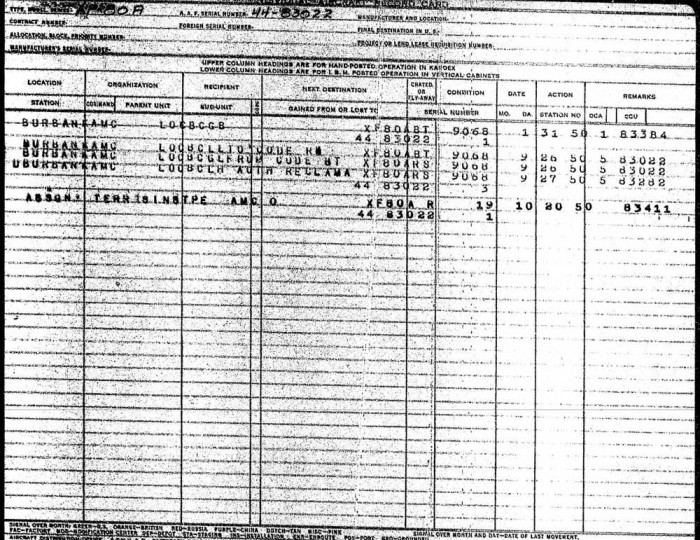 AIRCRAFT RECORD CARD
TYPE, MODEL, SERIES XF-80A A. A. F. SERIAL NUMBER 44-83022 MANUFACTURER AND LOCATION
CONTRACT NUMBER FOREIGN SERIAL NUMBER FINAL DESTINATION IN U. S.
ALLOCATION, BLOCK, PRIORITY NUMBER PROJECT OR LEND LEASE REQUISITION NUMBER
MANUFACTURER'S SERIAL NUMBER
UPPER COLUMN HEADINGS ARE FOR HAND POSTED OPERATION IN KARDEX
LOWER COLUMN HEADINGS ARE FOR I. B. M. POSTED OPERATION IN VERTICAL CABINETS
LOCATION ORGANIZATION RECIPIENT NEXT DESTINATION CRATED OR FLY-AWAY CONDITION DATE ACTION REMARKS
STATION COMMAND PARENT UNIT SUB-UNIT GAINED FROM OR LOST TO SERIAL NUMBER MO. DA STATION NO OCA CGU
BURBANK AMC LOCBCGB XF80ABT 9068 1 31 50 1 83384
44 83022 1
BURBANK AMC LOCBCLLTO CODE RM XF80ABT 9068 9 26 50 5 83022
BURBANK AMC LOCBCGLFROM CODE BT XF80ARS 9068 9 26 50 5 83022
BURBANK AMC LOCBCLH AUTH RECLAMA XF80ARS 9068 9 27 50 5 83282
44 83022 3
ASSGN: TERR SINSTPE AMC O XF80A R 19 10 20 50 83411
44 83022 1
SIGNAL OVER MONTH: GREEN-U.S. ORANGE-BRITISH RED-RUSSIA PURPLE-CHINA DUTCH-TAN MISC-PINK
FAC-FACTORY MOD-MODIFICATION CENTER DEP-DEPOT STA-STAGING INS-INSTALLATION ENR-ENROUTE POE-PORT GRD-GROUNDED SIGNAL OVER MONTH AND DAY-DATE OF LAST MOVEMENT.
AIRCRAFT